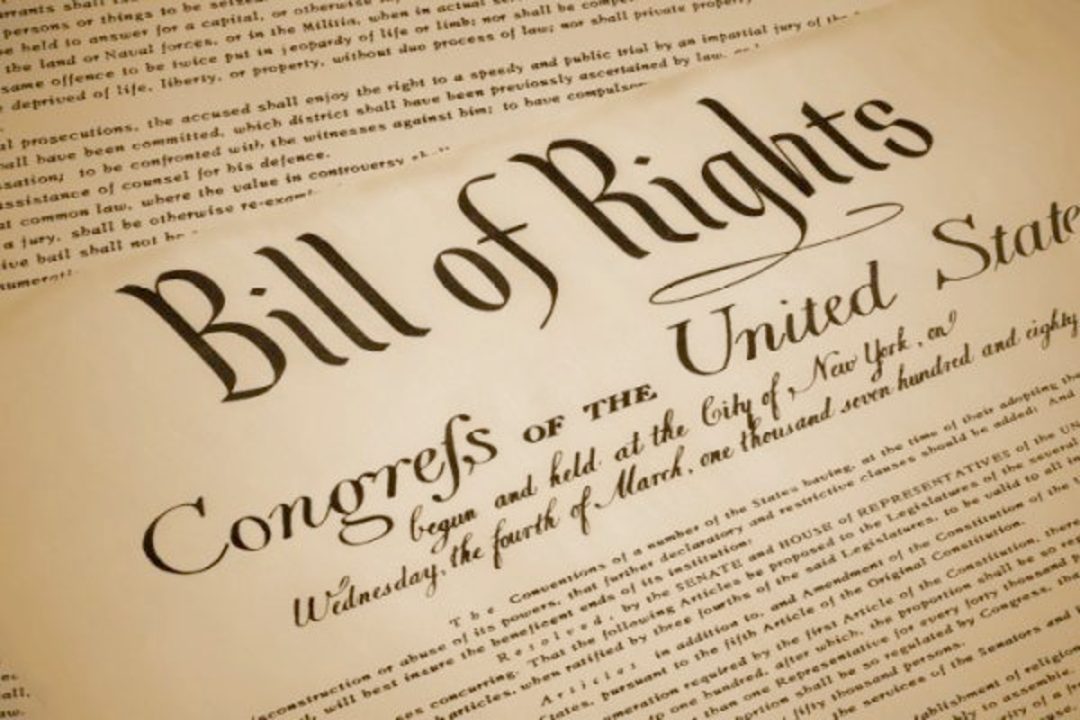 shall
persons or things to be seized.
be held to answer for a capital, or otherwise
the land or Naval forces, or in the Militia, when in actual
same offence to be twice put in jeopardy of life or limb; nor shall be
deprived of life, liberty, or property, without due process of law; nor shall private property
prosecutions, the accused shall enjoy the right to a speedy and public trial by an impartial jury of the
shall have been committed, which district shall have been previously ascertained by law,
to be confronted with the witnesses against him; to have
assistance of counsel for his defence.
at common law, where the value in controversy
a jury, shall be otherwise
bail shall not be
Bill of Rights
Congreſs OF THE United State
begun and held at the City of New York, on
Wednesday, the fourth of March, one thousand seven hundred and eighty
The Conventions of a number of the States having, at the time of their adopting the
or abuse of its powers, that further declaratory and restrictive clauses should be added: And
will best insure the beneficent ends of its institution:
Resolved, by the SENATE and HOUSE of REPRESENTATIVES of the UN
concurring. That the following Articles be proposed to the Legislatures of the several
articles, when ratified by three fourths of the said Legislatures, to be valid to all
Articles in addition to, and Amendment of the Constitution of the
States, pursuant to the fifth Article of the Original Constitution.
required by the first Article of the Constitution, there
one hundred, after which, the proportion shall be so
than one Representative for every forty thousand
fifty thousand persons.
shall be so regulated by Congress,
the services of the Senators and
of religion
to assemble,